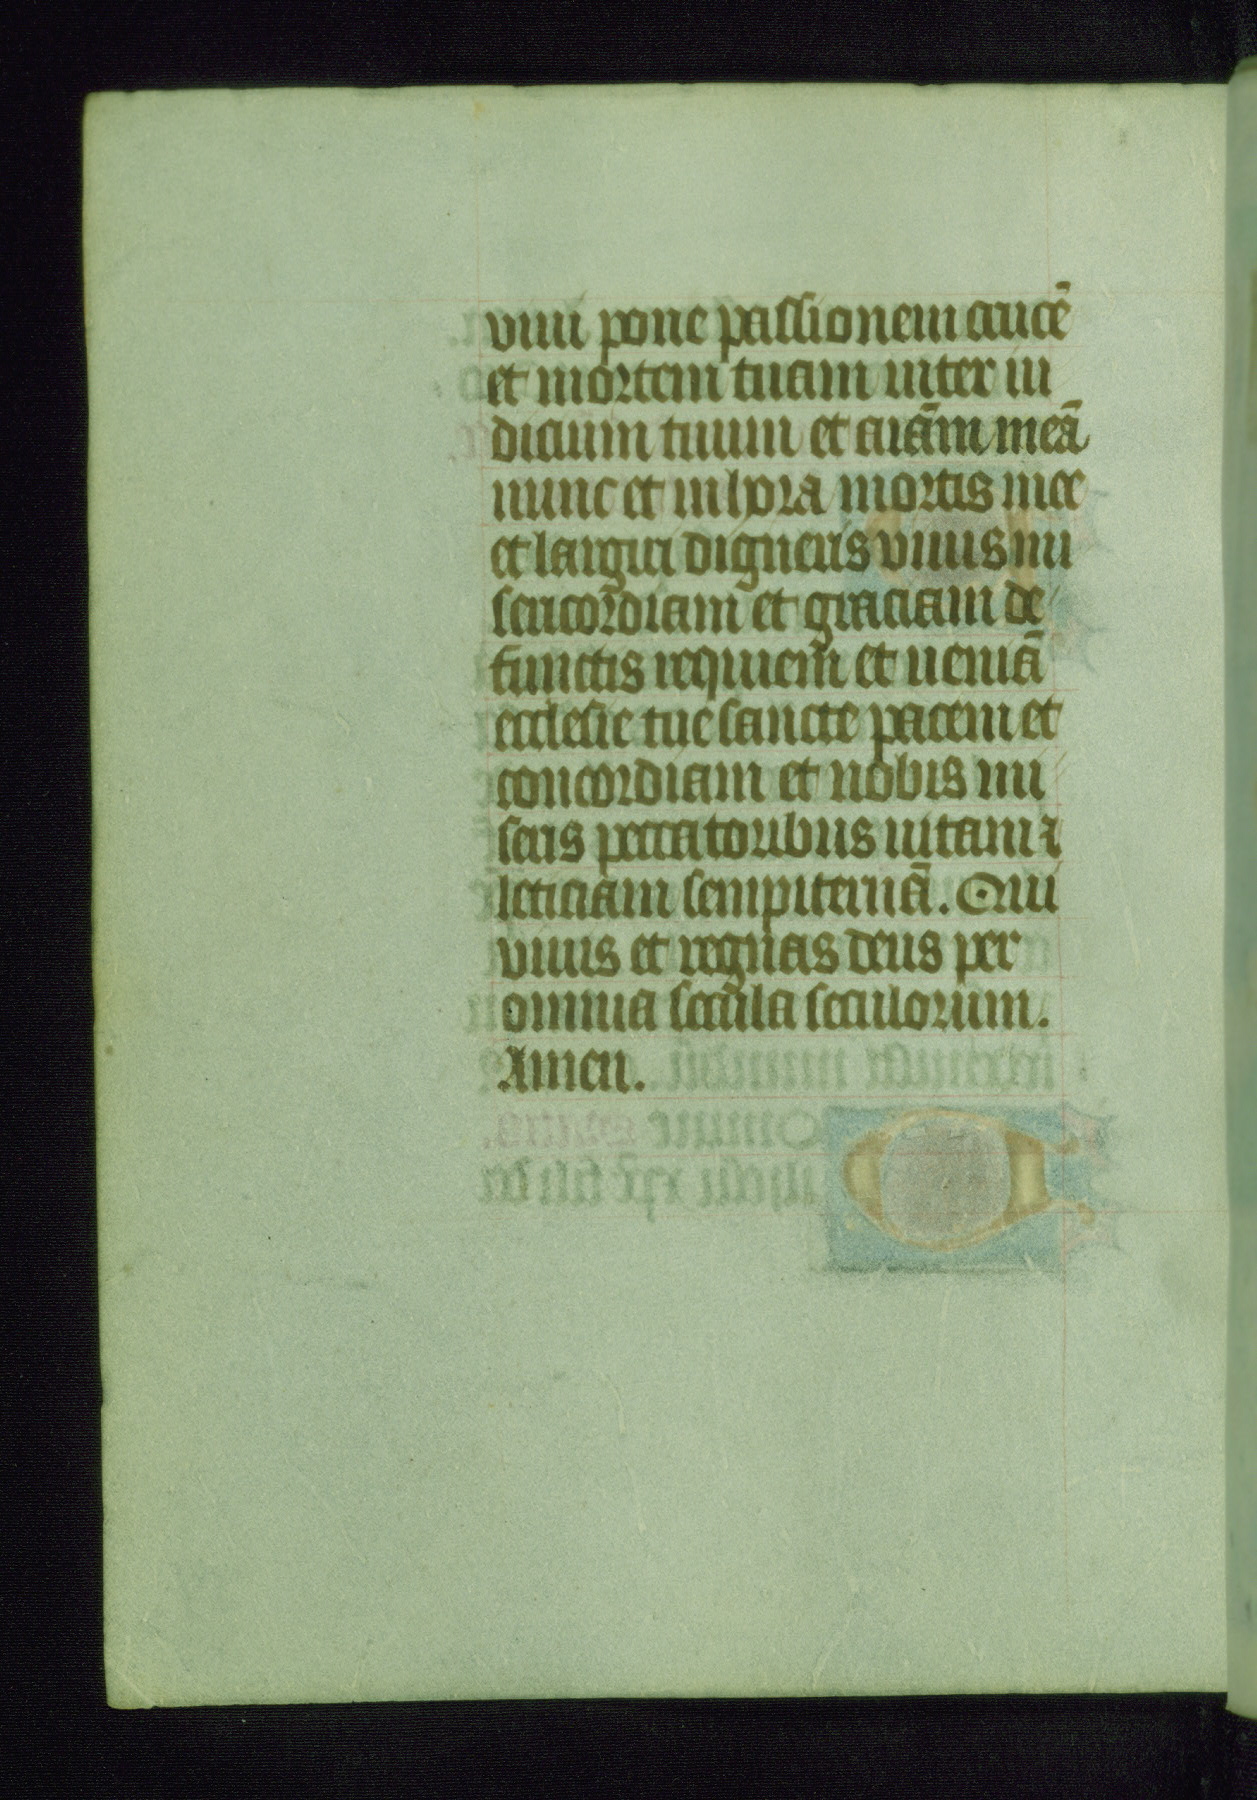 viui pone passionem crucē
et mortem tuam inter iu
dicium tuum et aiām meā
nunc et in hora mortis mee
et largiri digneris viuis mi
sericordiam et graciam de
functis requiem et ueniā
ecclesie tue sancte pacem et
concordiam et nobis mi
seris peccatoribus uitam ⁊
leticiam sempiternā. Qui
viuis et regnas deus per
omnia secula seculorum.
Amen.